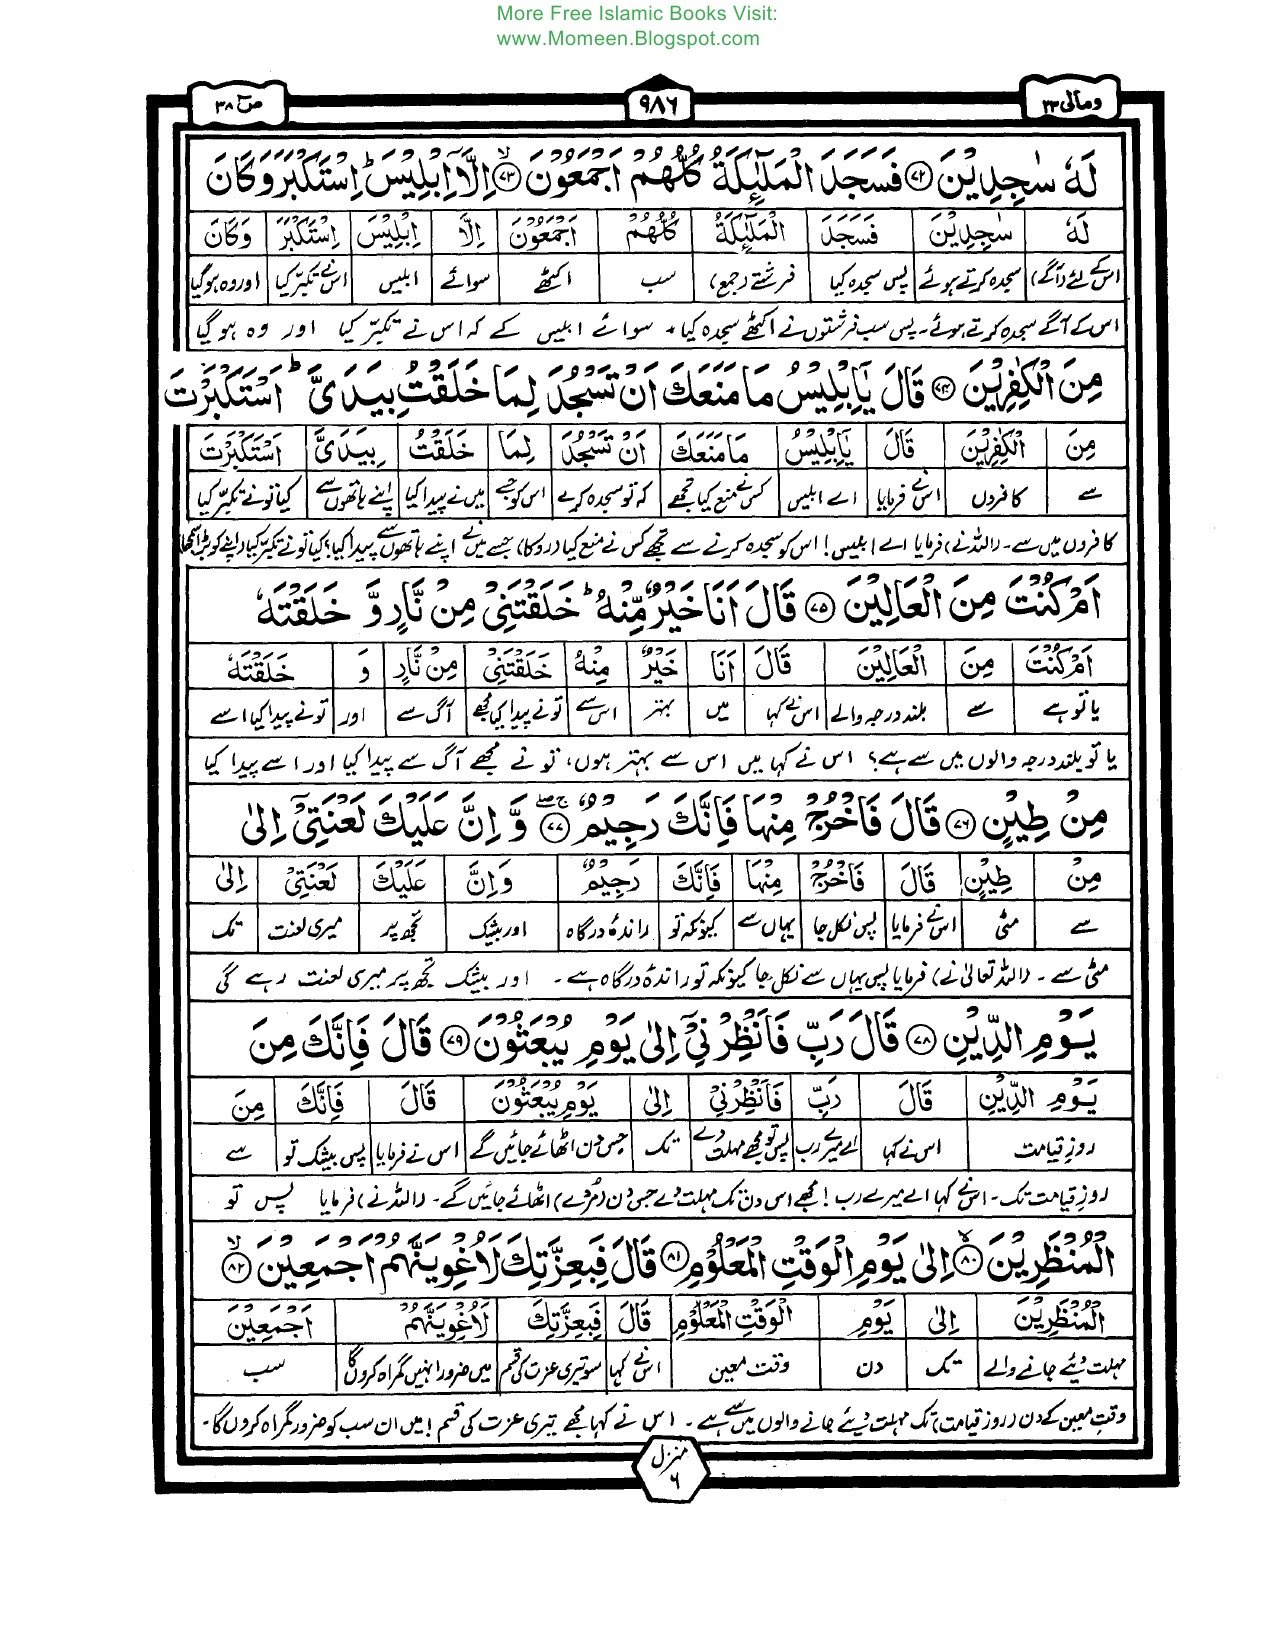 More Free Islamic Books Visit:
www.Momeen.Blogspot.com
ومالی ۲۳
۹۸۶
ص ۳۸
لَهٗ سٰجِدِیْنَ ﴿۷۲﴾ فَسَجَدَ الْمَلٰٓئِكَةُ كُلُّهُمْ اَجْمَعُوْنَ ﴿۷۳﴾ۙ اِلَّاۤ اِبْلِیْسَ ؕ اِسْتَكْبَرَ وَكَانَ
لَهٗ سٰجِدِیْنَ فَسَجَدَ الْمَلٰٓئِكَةُ كُلُّهُمْ اَجْمَعُوْنَ اِلَّا اِبْلِیْسَ اِسْتَكْبَرَ وَكَانَ
اس کے لئے (آگے) سجدہ کرتے ہوئے پس سجدہ کیا فرشتے (جمع) سب اکٹھے سوائے ابلیس اس نے تکبر کیا اور وہ ہو گیا
اس کے آگے سجدہ کرتے ہوئے۔ پس سب فرشتوں نے اکٹھے سجدہ کیا، سوائے ابلیس کے کہ اس نے تکبّر کیا اور وہ ہو گیا
مِنَ الْكٰفِرِیْنَ ﴿۷۴﴾ قَالَ یٰۤاِبْلِیْسُ مَا مَنَعَكَ اَنْ تَسْجُدَ لِمَا خَلَقْتُ بِیَدَیَّ ؕ اَسْتَكْبَرْتَ
مِنَ الْكٰفِرِیْنَ قَالَ یٰۤاِبْلِیْسُ مَا مَنَعَكَ اَنْ تَسْجُدَ لِمَا خَلَقْتُ بِیَدَیَّ اَسْتَكْبَرْتَ
سے کافروں اس نے فرمایا اے ابلیس کس نے منع کیا تجھے کہ تو سجدہ کرے اس کو جسے میں نے پیدا کیا اپنے ہاتھوں سے کیا تو نے تکبّر کیا
کافروں میں سے۔ (اللہ نے) فرمایا اے ابلیس! اس کو سجدہ کرنے سے تجھے کس نے منع کیا (روکا) جسے میں نے اپنے ہاتھوں سے پیدا کیا؟ کیا تو نے تکبّر کیا (اپنے کو بڑا سمجھا)
اَمْ كُنْتَ مِنَ الْعَالِیْنَ ﴿۷۵﴾ قَالَ اَنَا خَیْرٌ مِّنْهُ ؕ خَلَقْتَنِیْ مِنْ نَّارٍ وَّ خَلَقْتَهٗ
اَمْ كُنْتَ مِنَ الْعَالِیْنَ قَالَ اَنَا خَیْرٌ مِنْهُ خَلَقْتَنِیْ مِنْ نَّارٍ وَ خَلَقْتَهٗ
یا تو ہے سے بلند درجہ والے اس نے کہا میں بہتر اس سے تو نے پیدا کیا مجھے آگ سے اور تو نے پیدا کیا اسے
یا تو بلند درجہ والوں میں سے ہے؟ اس نے کہا میں اس سے بہتر ہوں، تو نے مجھے آگ سے پیدا کیا اور اسے پیدا کیا
مِنْ طِیْنٍ ﴿۷۶﴾ قَالَ فَاخْرُجْ مِنْهَا فَاِنَّكَ رَجِیْمٌ ﴿۷۷﴾ۚۖ وَّ اِنَّ عَلَیْكَ لَعْنَتِیْۤ اِلٰی
مِنْ طِیْنٍ قَالَ فَاخْرُجْ مِنْهَا فَاِنَّكَ رَجِیْمٌ وَاِنَّ عَلَیْكَ لَعْنَتِیْۤ اِلٰی
سے مٹی اس نے فرمایا پس نکل جا یہاں سے کیونکہ تو راندۂ درگاہ اور بیشک تجھ پر میری لعنت تک
مٹی سے۔ (اللہ تعالیٰ نے) فرمایا پس یہاں سے نکل جا کیونکہ تو راندۂ درگاہ ہے۔ اور بیشک تجھ پر میری لعنت رہے گی
یَوْمِ الدِّیْنِ ﴿۷۸﴾ قَالَ رَبِّ فَاَنْظِرْنِیْۤ اِلٰی یَوْمِ یُبْعَثُوْنَ ﴿۷۹﴾ قَالَ فَاِنَّكَ مِنَ
یَوْمِ الدِّیْنِ قَالَ رَبِّ فَاَنْظِرْنِیْ اِلٰی یَوْمِ یُبْعَثُوْنَ قَالَ فَاِنَّكَ مِنَ
روزِ قیامت اس نے کہا اے میرے رب پس تو مجھے مہلت دے تک جس دن اٹھائے جائیں گے اس نے فرمایا پس بیشک تو سے
روزِ قیامت تک۔ اس نے کہا اے میرے رب! مجھے اس دن تک مہلت دے جس دن (مُردے) اٹھائے جائیں گے۔ (اللہ نے) فرمایا پس تو
الْمُنْظَرِیْنَ ﴿۸۰﴾ۙ اِلٰی یَوْمِ الْوَقْتِ الْمَعْلُوْمِ ﴿۸۱﴾ قَالَ فَبِعِزَّتِكَ لَاُغْوِیَنَّهُمْ اَجْمَعِیْنَ ﴿۸۲﴾ۙ
الْمُنْظَرِیْنَ اِلٰی یَوْمِ الْوَقْتِ الْمَعْلُوْمِ قَالَ فَبِعِزَّتِكَ لَاُغْوِیَنَّهُمْ اَجْمَعِیْنَ
مہلت دیئے جانے والے تک دن وقت معین اس نے کہا سو تیری عزت کی قسم میں ضرور انہیں گمراہ کروں گا سب
وقتِ معین کے دن (روز قیامت) تک مہلت دیئے جانے والوں میں سے ہے۔ اس نے کہا مجھے تیری عزت کی قسم! میں ان سب کو ضرور گمراہ کروں گا۔
منزل ۶